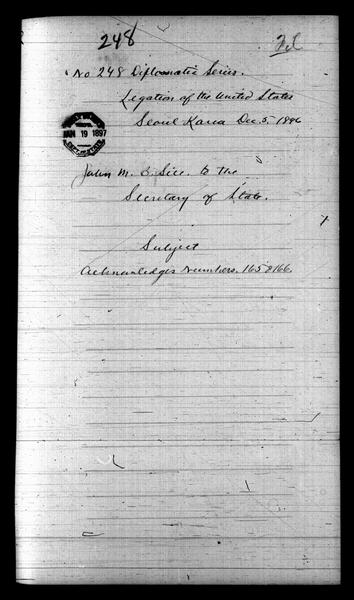 248
No 248 Diplomatic Series.
Legation of the United States
Seoul Korea Dec. 5, 1896
JAN 19 1897
John M. B. Sill to the
Secretary of State.
Subject
Acknowledges Numbers. 165 & 166.